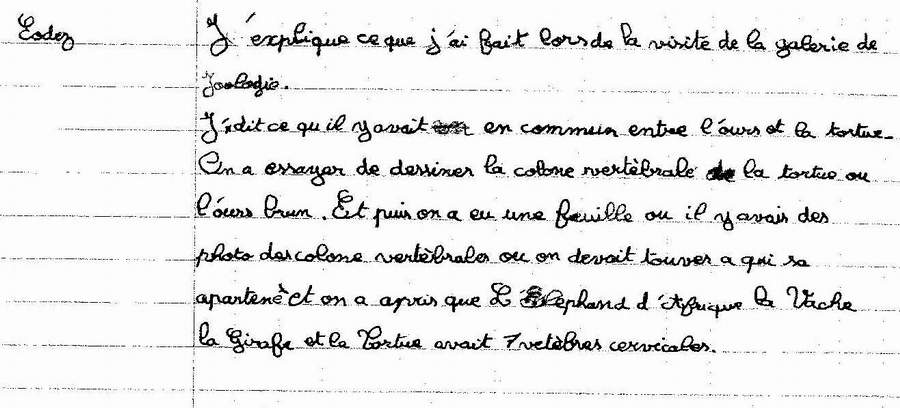 Eodez
J'éxplique ce que j'ai fait lors de la visite de la galerie de
Zoologie.
J'ai dit ce qu il y avait en commun entre l'ours et la tortue.
On a essayer de dessiner la colone vertèbrale de la tortue ou
l'ours brun. Et puis on a eu une feuille ou il y avais des
photo des colone vertèbrales ou on devait touver a qui sa
apartenè et on a apris que L'Elephand d'Afrique la Vache
la Girafe et la Tortue avait 7 vetèbres cervicales.